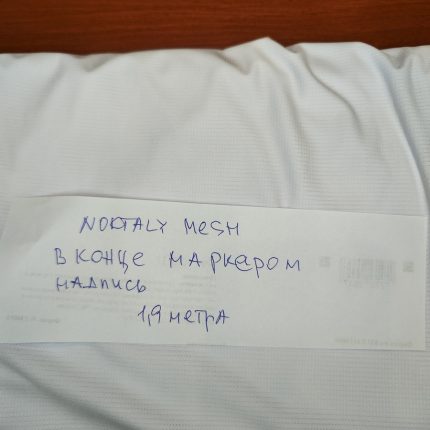 NORTALY MESH
В КОНЦЕ МАРКЕРОМ
НАДПИСЬ
1,9 МЕТРА